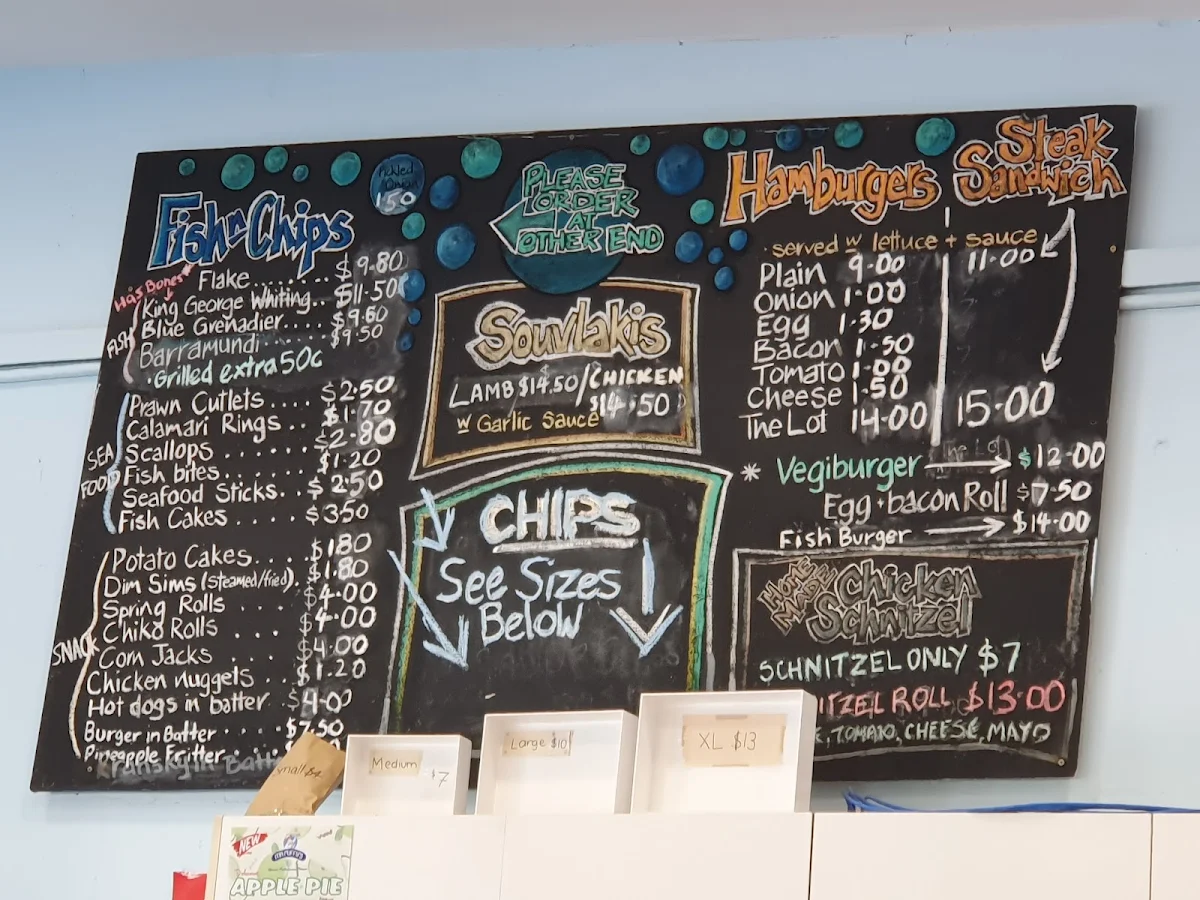 Pickled
Onion
1.50
Fish n Chips
Has Bones
FISH
Flake....... $9.80
King George Whiting.. $11.50
Blue Grenadier.... $9.60
Barramundi...... $9.50
• Grilled extra 50c
SEA FOOD
Prawn Cutlets.... $2.50
Calamari Rings.. $1.70
Scallops...... $2.80
Fish bites..... $1.20
Seafood Sticks.. $2.50
Fish Cakes.... $3.50
SNACK
Potato Cakes... $1.80
Dim Sims (steamed/fried). $1.80
Spring Rolls... $4.00
Chiko Rolls... $4.00
Corn Jacks $4.00
Chicken nuggets.. $1.20
Hot dogs in batter.. $4.00
Burger in Batter.. $7.50
Pineapple Fritter.... $
Kransky in Batt
PLEASE
ORDER
AT
OTHER END
Souvlakis
LAMB $14.50/CHICKEN
$14.50
w Garlic Sauce
CHIPS
See Sizes
Below
Hamburgers
Steak
Sandwich
• served w lettuce + sauce
Plain 9.00 11.00
Onion 1.00
Egg 1.30
Bacon 1.50
Tomato 1.00
Cheese 1.50
The Lot 14.00 15.00
The Lot
* Vegiburger $12.00
Egg + bacon Roll $7.50
Fish Burger $14.00
HOME
MADE
Chicken
Schnitzel
SCHNITZEL ONLY $7
ITZEL ROLL $13.00
E, TOMATO, CHEESE, MAYO
small $4
Medium $7
Large $10
XL $13
NEW
APPLE PIE